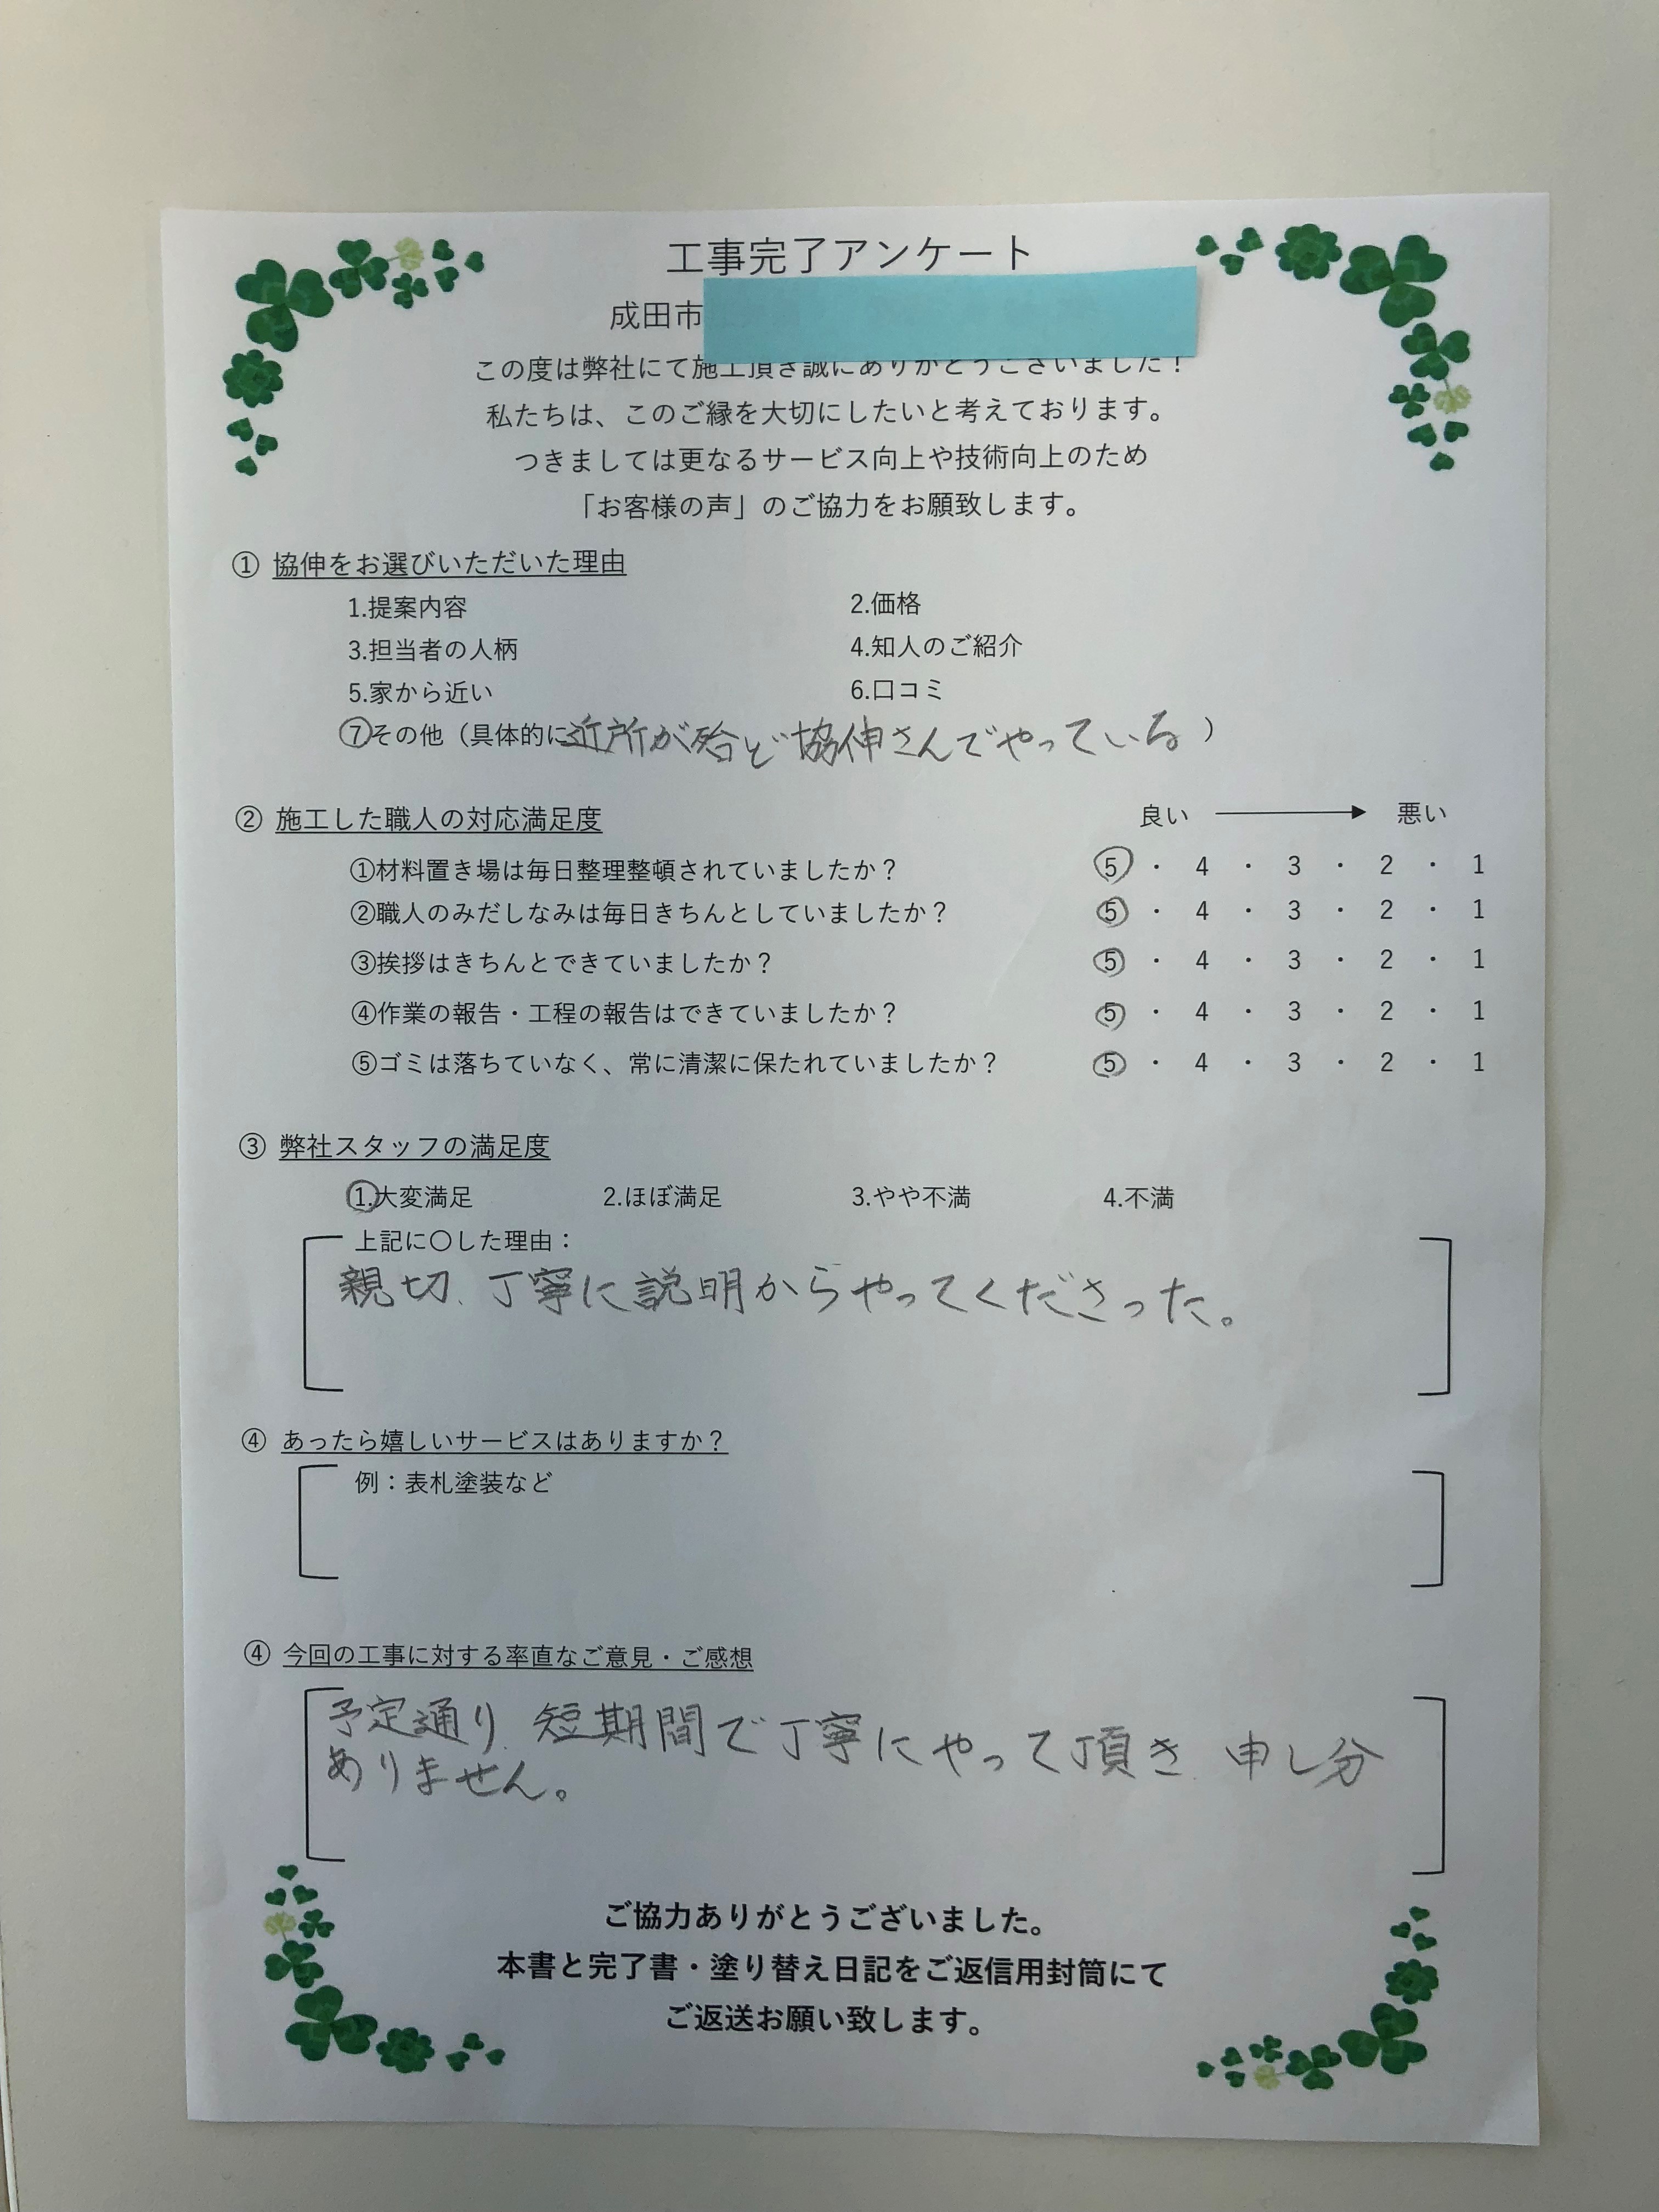 工事完了アンケート
成田市
この度は弊社にて施工頂き誠にありがとうございました！
私たちは、このご縁を大切にしたいと考えております。
つきましては更なるサービス向上や技術向上のため
「お客様の声」のご協力をお願致します。
① 協伸をお選びいただいた理由
1.提案内容 2.価格
3.担当者の人柄 4.知人のご紹介
5.家から近い 6.口コミ
7.その他（具体的に近所が殆ど協伸さんでやっている）
② 施工した職人の対応満足度 良い 悪い
①材料置き場は毎日整理整頓されていましたか？ 5 ・ 4 ・ 3 ・ 2 ・ 1
②職人のみだしなみは毎日きちんとしていましたか？ 5 ・ 4 ・ 3 ・ 2 ・ 1
③挨拶はきちんとできていましたか？ 5 ・ 4 ・ 3 ・ 2 ・ 1
④作業の報告・工程の報告はできていましたか？ 5 ・ 4 ・ 3 ・ 2 ・ 1
⑤ゴミは落ちていなく、常に清潔に保たれていましたか？ 5 ・ 4 ・ 3 ・ 2 ・ 1
③ 弊社スタッフの満足度
1.大変満足 2.ほぼ満足 3.やや不満 4.不満
上記に〇した理由：
親切、丁寧に説明からやってくださった。
④ あったら嬉しいサービスはありますか？
例：表札塗装など
④ 今回の工事に対する率直なご意見・ご感想
予定通り、短期間で丁寧にやって頂き、申し分
ありません。
ご協力ありがとうございました。
本書と完了書・塗り替え日記をご返信用封筒にて
ご返送お願い致します。